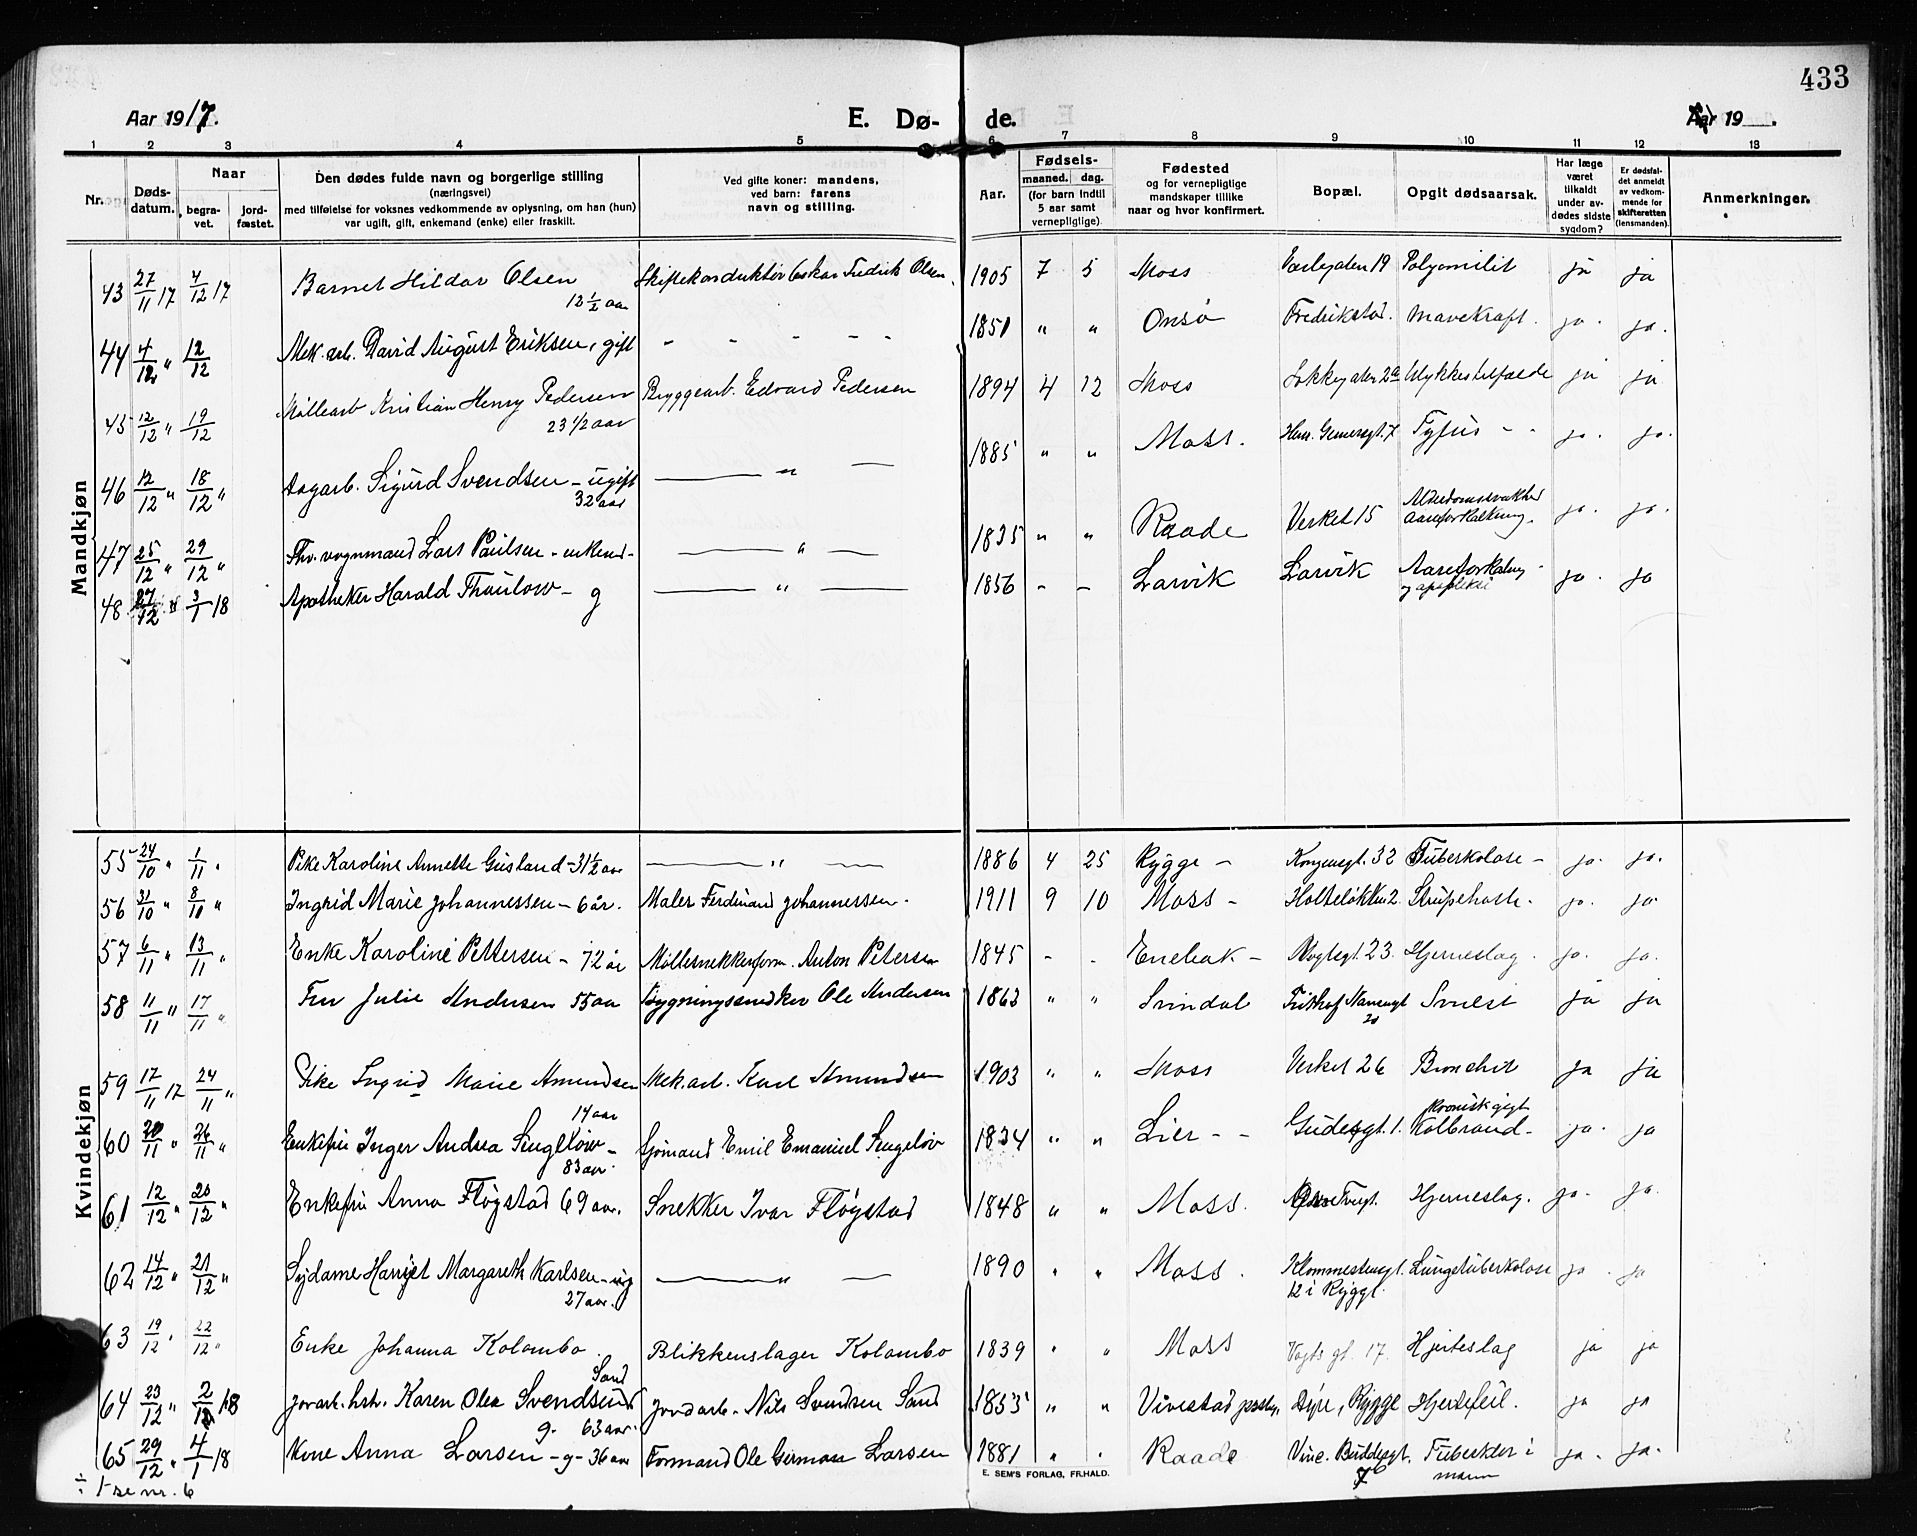 433
Aar 1917.
E. Dø- de.
Aar 19 .
1 2 3 4 5 6 7 8 9 10 11 12 13
Nr.
Døds-datum.
Naar
begra-vet.
jord-fæstet.
Den dødes fulde navn og borgerlige stilling
(næringsvei)
med tilføielse for voksnes vedkommende av oplysning, om han (hun)
var ugift, gift, enkemand (enke) eller fraskilt.
Ved gifte koner: mandens,
ved barn: farens
navn og stilling.
Aar.
Fødsels-
maaned. dag.
(for barn indtil
5 aar samt
vernepligtige)
Fødested
og for vernepligtige
mandskaper tillike
naar og hvor konfirmert.
Bopæl.
Opgit dødsaarsak.
Har læge
været
tilkaldt
under av-
dødes sidste
sygdom?
Er dødsfal-
det anmeldt
av vedkom-
mende for
skifteretten
(lensmanden).
Anmerkninger.
Mandkjøn
43 27/11 17 4/12 17 Barnet Hildar Olsen 12 1/2 aar Skiftekonduktør Oskar Fredrik Olsen. 1905 7 5 Moss 19 ja ja
44 4/12 " 12/12 Mek. arb. David August Eriksen, gift - - - - 1851 " " Onsø Fredrikstad. Mavekræft. ja. ja.
45 12/12 " 19/12 Møllearb Kristian Henry Pedersen 23 1/2 aar Bryggearb. Edvard Pedersen 1894 4 12 Moss Ulykkestilfælde ja ja
46 12/12 " 18/12 " Sigurd Svendsen - ugift 32 aar — " — 1885 " " Moss. Henr. Gernersgt. 7 Tyfus - - ja. ja.
47 25/12 " 29/12 " Fhv. vognmand Lars Paulsen - enkem- — " — 1835 " " Raade Verket 15 Alderdomssvakhed aareforkalkning. ja. ja.
48 27/12 " 3/1 18 Apotheker Harald Thaulow - g — " — 1856 - - Larvik Larvik Aareforkalkng og apopleksi ja. ja
Kvindekjøn
55 24/10 " 1/11 " Pike Karoline Annette Gusland - 31 1/2 aar — " — 1886 4 25 Rygge - Kongensgt. 32 Tuberkolose - ja. ja.
56 31/10 " 8/10 " Ingrid Marie Johannessen - 6 år. Maler Ferdinand Johannessen. 1911 9 10 Moss - Holteløkken 2. Strupehoste. ja. ja
57 6/11 " 13/11 " Enke Karoline Pettersen - 72 år Møllesnekkerform. Anton Petersen 1845 - - Enebak - Vogtsgt. 23. Hjerneslag. ja. ja.
58 11/11 " 17/11 " Fru Julie Andersen 55 aar Bygningssnekker Ole Andersen 1862 " " Svindal Fritthof Nansensgt 20 ja ja
59 17/11 17 24/11 " Pike Ingrid Marie Amundsen 14 aar Mek. arb. Karl Amundsen 1903 " " Moss Verket 26 Bronchit ja ja
60 20/11 " 26/11 " Enkefru Inger Andrea Sengeløw - 83 aar. Sjømand Emil Emanuel Sengeløv 1834 " " Lier - - Gudesgt. 1. kronisk gigt Kolbrand - ja. ja
61 12/12 " 20/12 " Enkefru Anna Fløgstad 69 aar. Snekker Ivar Fløgstad 1848 " " Moss. Hjerneslag. ja. ja.
62 14/12 " 21/12 " Sydame Harriet Margareth Karlsen - ug 27 aar. — " — 1890 " " Moss. 12 i Rygge Lungetuberkolose ja. ja
63 19/12 " 22/12 " Enke Johanna Kolambo. Blikkenslager Kolambo 1839 " " Moss Vogts gt. 17. Hjerteslag ja ja
64 23/12 " 2/1 18 Jordarb. hstr. Karen Olea Svendsen Sand g. 63 aar. Jordarb. Nils Svendsen Sand 1853 " " Vivestad Dyre, Rygge Hjertefeil. ja ja
65 29/12 " 4/1 18 Kone Anna Larsen - g - 36 aar Formand Ole Larsen 1881 " " Raade Vinc. Buddesgt. 7 ja. ja.
÷ 1 se nr. 6
E. SEM'S FORLAG, FR.HALD.